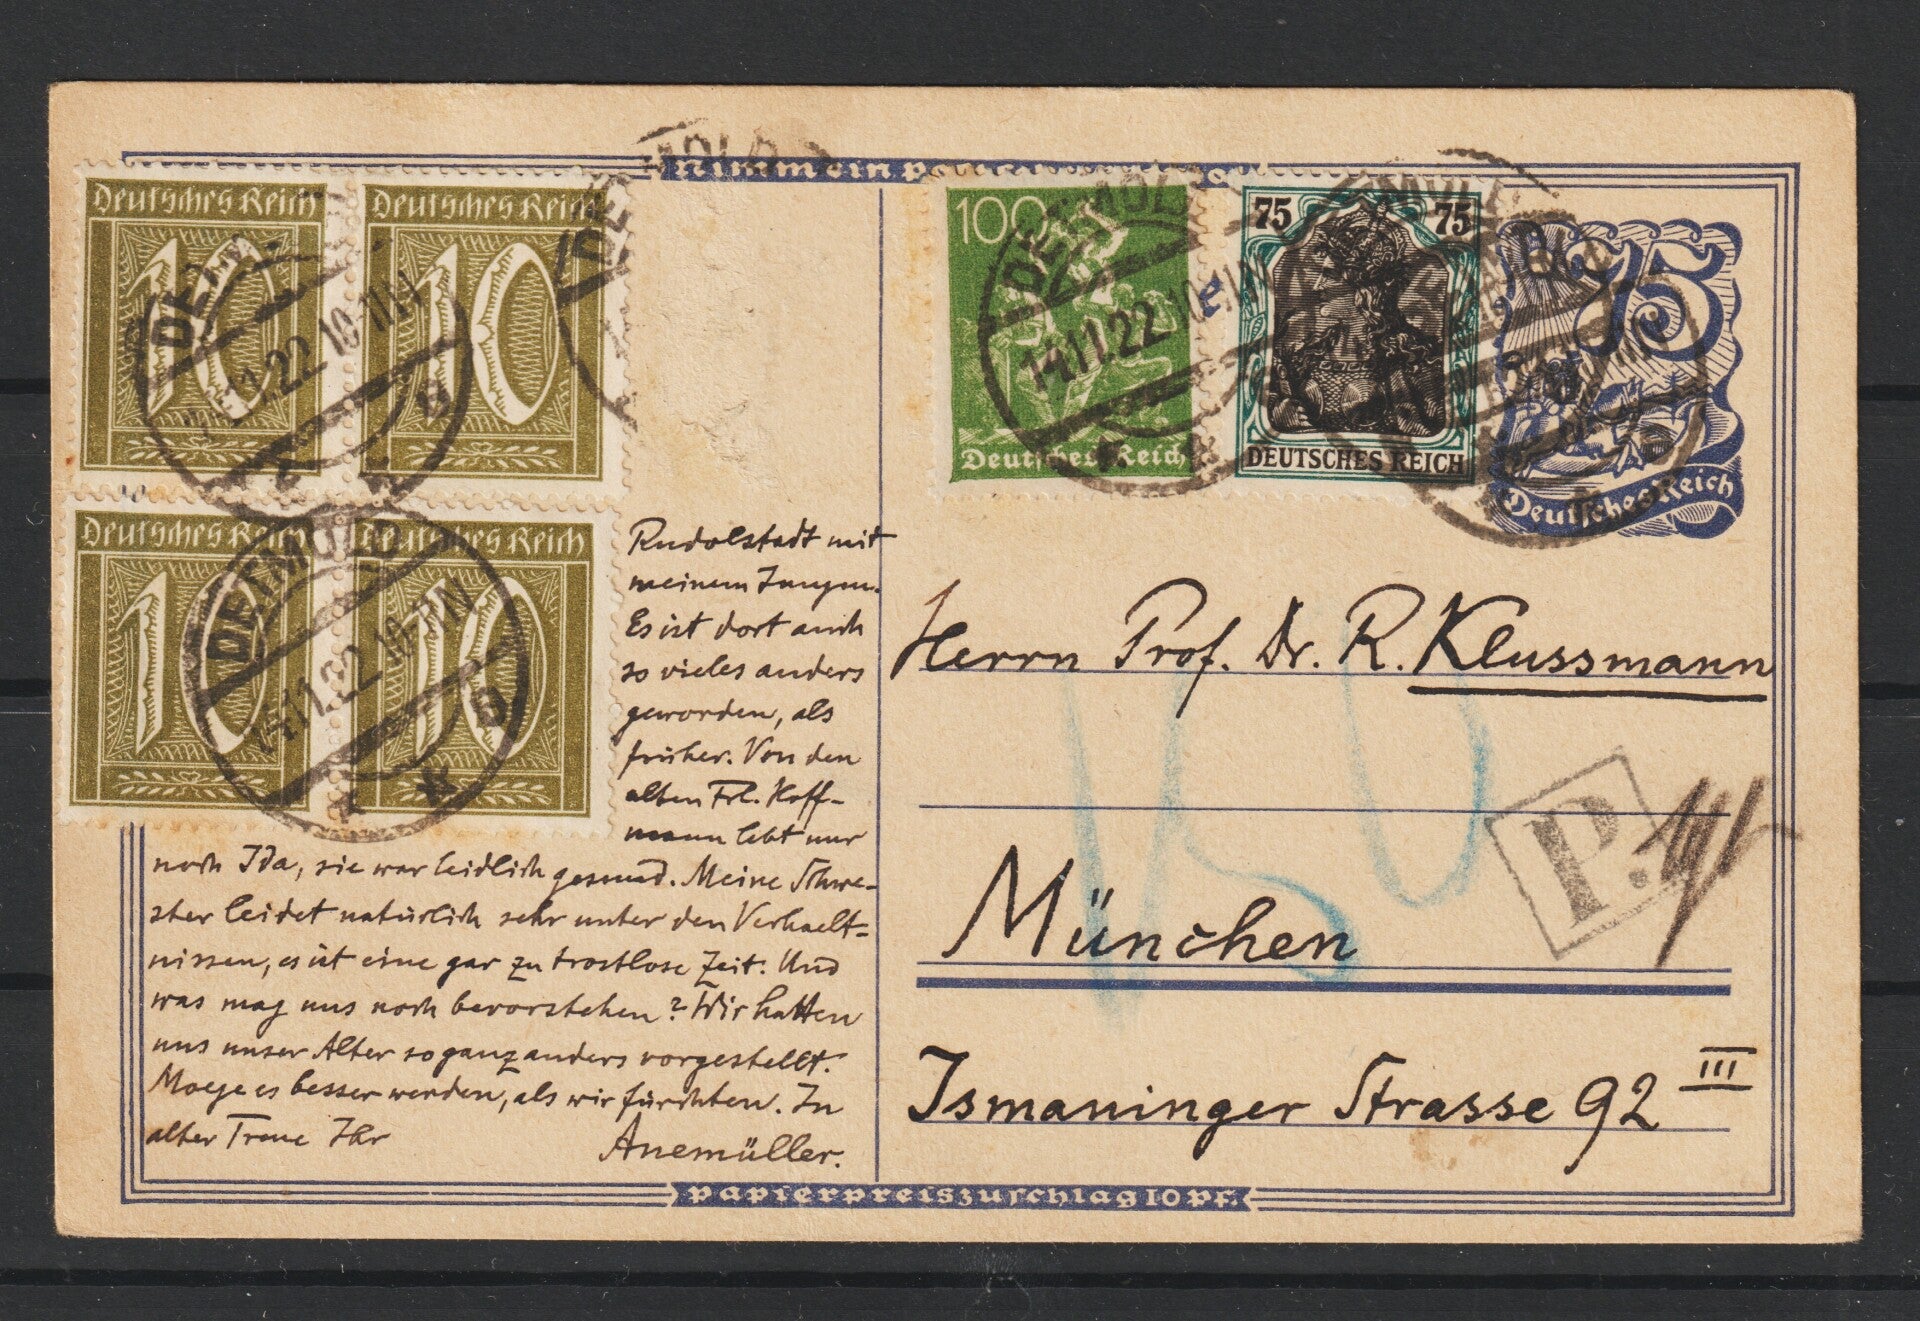 Deutsches Reich
10
Deutsches Reich
10
Deutsches Reich
10
Deutsches Reich
10
DETMOLD
14.11.22.10-11N
100
Deutsches Reich
75 75
DEUTSCHES REICH
75
Deutsches Reich
Rudolstadt mit
meinem Jungen.
Es ist dort auch
so vieles anders
geworden, als
früher. Von den
alten Frl. Hoff-
mann lebt nur
noch Ida, sie war leidlich gesund. Meine Schwe-
ster leidet natürlich sehr unter den Verhaelt-
nissen, es ist eine gar zu trostlose Zeit. Und
was mag uns noch bevorstehen? Wir hatten
uns unser Alter so ganz anders vorgestellt.
Moege es besser werden, als wir fürchten. In
alter Treue Ihr
Anemüller.
Herrn Prof. Dr. R. Klussmann
München
Ismaninger Strasse 92 III
P.
papierpreiszuschlag 10 pf.